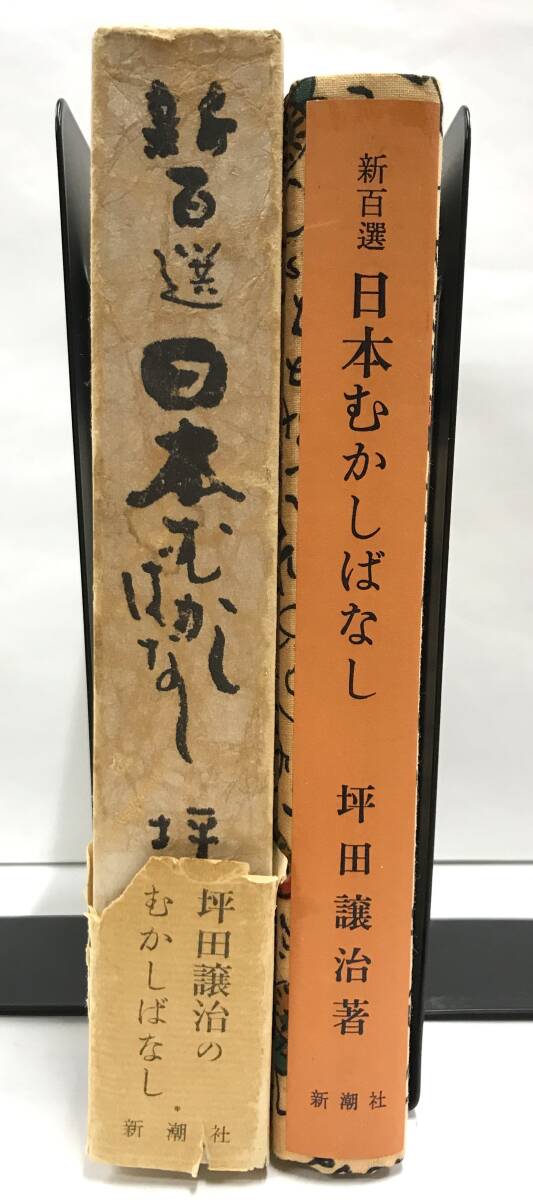 新百選
日本むかし
ばなし
坪
坪田譲治の
むかしばなし
新潮社
新百選
日本むかしばなし
坪田譲治著
新潮社